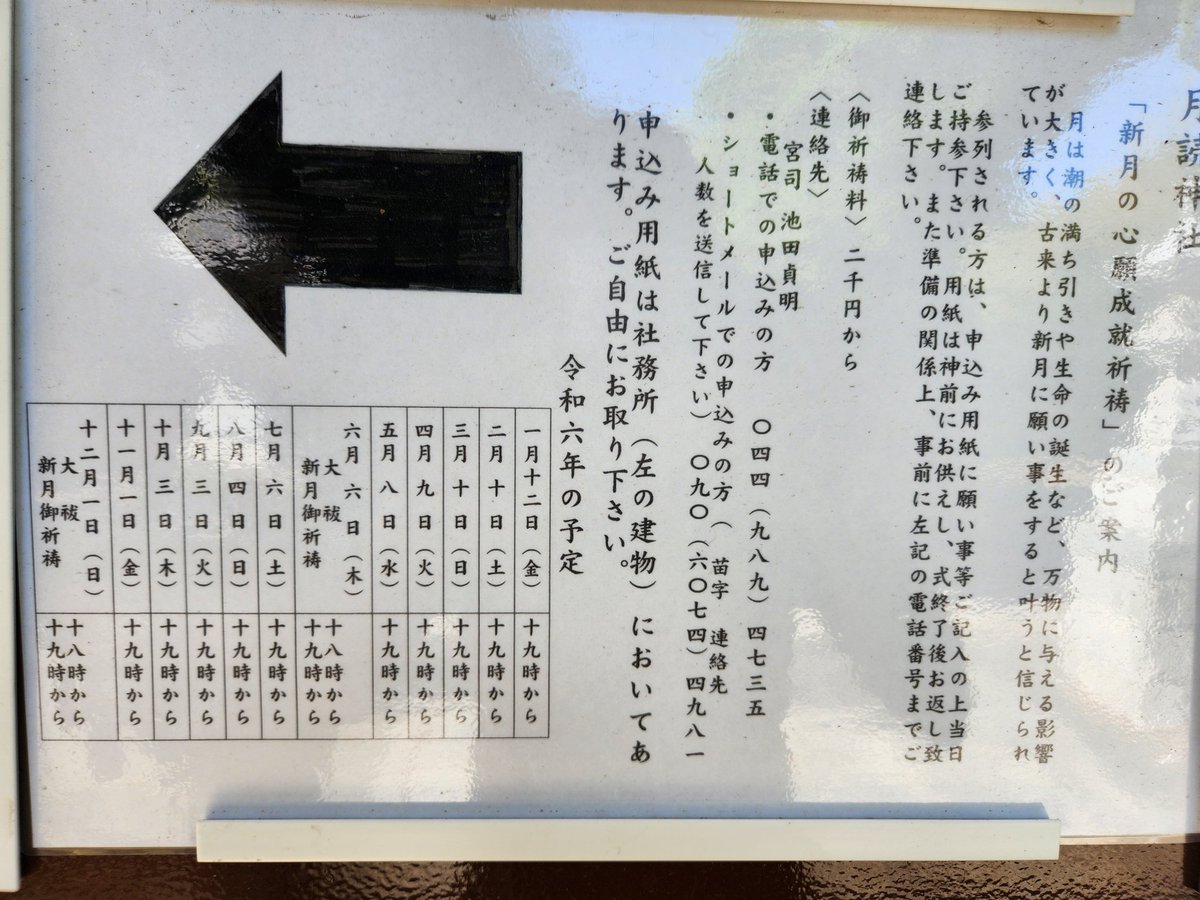 月讀神社
「新月の心願成就祈祷」のご案内
月は潮の満ち引きや生命の誕生など、万物に与える影響
が大きく、古来より新月に願い事をすると叶うと信じられ
ています。
参列される方は、申込み用紙に願い事等ご記入の上当日
ご持参下さい。用紙は神前にお供えし、式終了後お返し致
します。また準備の関係上、事前に左記の電話番号までご
連絡下さい。
〈御祈祷料〉二千円から
〈連絡先〉
宮司 池田貞明
・電話での申込みの方 〇四四(九八九)四七三五
・ショートメールでの申込みの方(苗字 連絡先
人数を送信して下さい)〇九〇(六〇七四)四九八一
申込み用紙は社務所(左の建物)においてあ
ります。ご自由にお取り下さい。
令和六年の予定
一月十二日(金) 十九時から
二月十日(土) 十九時から
三月十日(日) 十九時から
四月九日(火) 十九時から
五月八日(水) 十九時から
六月六日(木)
大祓 十八時から
新月御祈祷 十九時から
七月六日(土) 十九時から
八月四日(日) 十九時から
九月三日(火) 十九時から
十月三日(木) 十九時から
十一月一日(金) 十九時から
十二月一日(日)
大祓 十八時から
新月御祈祷 十九時から